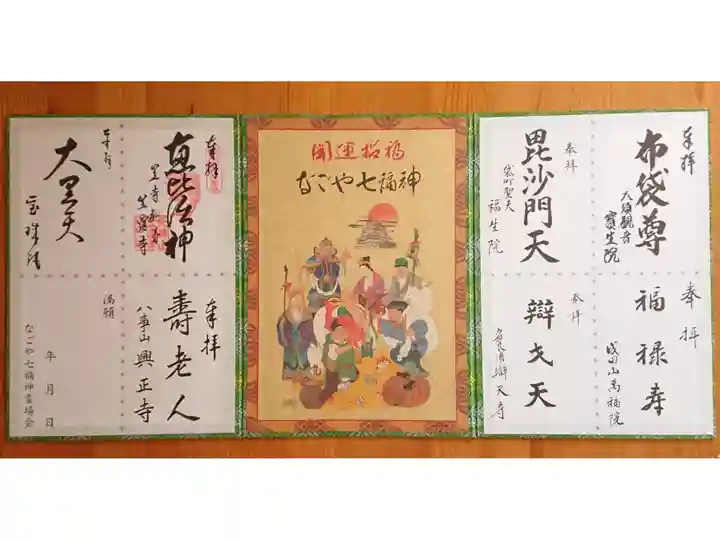 奉拝
布袋尊
大須観音
寶生院
奉拝
毘沙門天
袋町聖天
福生院
奉拝
福禄寿
成田山萬福院
奉拝
辯戈天
天寺
開運招福
なごや七福神
奉拝
恵比須神
笠寺観音
笠覆寺
奉拝
大黒天
宝珠院
奉拝
寿老人
八事山
興正寺
満願
年月日
なごや七福神霊場会